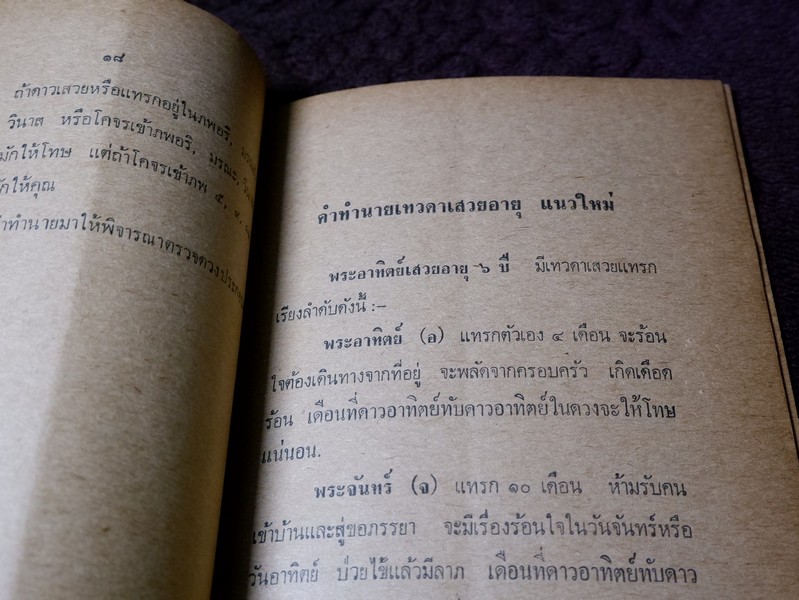 ๑๘
ถ้าดาวเสวยหรือแทรกอยู่ในภพอริ,
วินาส หรือโคจรเข้าภพอริ, มรณะ,
มักให้โทษ แต่ถ้าโคจรเข้าภพ ๕, ๙,
ให้คุณ
ทำนายมาให้พิจารณาตรวจดวง
คำทำนายเทวดาเสวยอายุ แนวใหม่
พระอาทิตย์เสวยอายุ ๖ ปี มีเทวดาเสวยแทรก
เรียงลำดับดังนี้ :–
พระอาทิตย์ (อ) แทรกตัวเอง ๔ เดือน จะร้อน
ใจต้องเดินทางจากที่อยู่ จะพลัดจากครอบครัว เกิดเดือด
ร้อน เดือนที่ดาวอาทิตย์ทับดาวอาทิตย์ในดวงจะให้โทษ
แน่นอน.
พระจันทร์ (จ) แทรก ๑๐ เดือน ห้ามรับคน
เข้าบ้านและสู่ขอภรรยา จะมีเรื่องร้อนใจในวันจันทร์หรือ
วันอาทิตย์ ป่วยไข้แล้วมีลาภ เดือนที่ดาวอาทิตย์ทับดาว